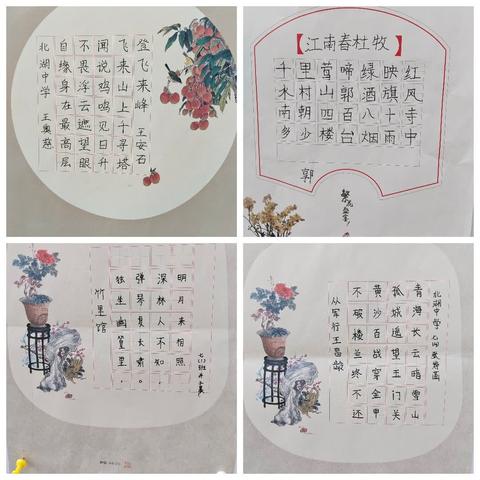 登飞来峰 王安石
飞来山上千寻塔
闻说鸡鸣见日升
不畏浮云遮望眼
自缘身在最高层
北湖中学 王奥慈
【江南春杜牧】
千里莺啼绿映红
水村山郭酒旗风
南朝四百八十寺
多少楼台烟雨中
朝
竹里馆
独坐幽篁里。
弹琴复长啸。
深林人不知,
明月来相照
七(1)班
北湖中学
青海长云暗雪山
孤城遥望玉门关
黄沙百战穿金甲
不破楼兰终不还
从军行王昌龄